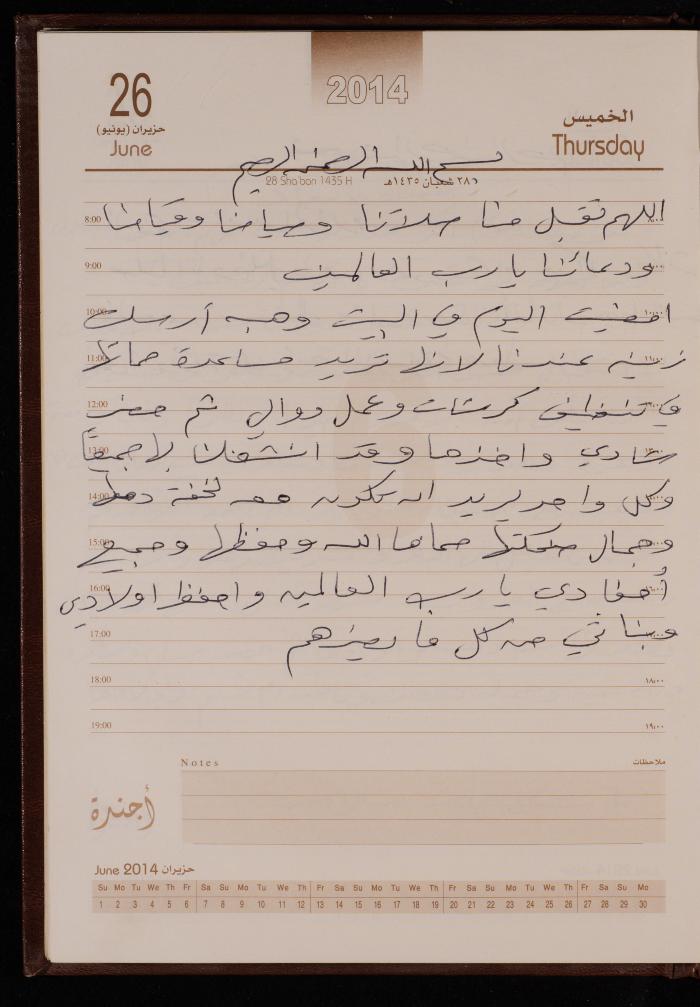 2014
26
حزيران (يونيو)
June
الخميس
Thursday
بسم الله الرحمن الرحيم
28 Sha'ban 1435 H
٢٨ شعبان ١٤٣٥هـ
8:00 اللهم تقبل منا صلاتنا وصيامنا وقيامنا
9:00 ودعائنا يارب العالمين
10:00 امضيت اليوم في البيت وهبه أرسلت
11:00 زينه عندنا لانها تريد مساعدة حماتها
12:00 في تنظيف كرشات وعمل دوالي ثم حضر
13:00 شادي واخذها وقد انشغلنا بها جميعًا
14:00 وكل واحد يريد ان تكون معه لخفة دمها
15:00 وجمال ضحكتها حماها الله وحفظها وجميع
16:00 أحفادي يارب العالمين واحفظ اولادي
17:00 وبناتي من كل ما يضرهم
18:00 ١٨،٠٠
19:00 ١٩،٠٠
Notes ملاحظات
أجندة
June 2014 حزيران
Su Mo Tu We Th Fr Sa Su Mo Tu We Th Fr Sa Su Mo Tu We Th Fr Sa Su Mo Tu We Th Fr Sa Su Mo
1 2 3 4 5 6 7 8 9 10 11 12 13 14 15 16 17 18 19 20 21 22 23 24 25 26 27 28 29 30